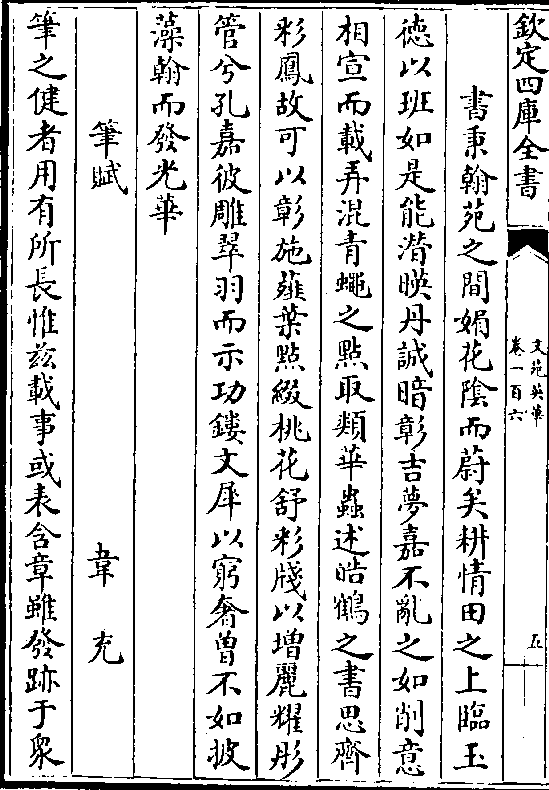 欽定四庫全書
文苑英華
卷一百六
五
書秉翰苑之間媚花陰而蔚矣耕情田之上臨玉
徳以班如是能潛暎丹誠暗彰吉夢嘉不亂之如削意
相宣而載弄混青蠅之點取類華蟲述皓鶴之書思齊
彩鳳故可以彰施薤葉點綴桃花舒彩牋以増麗耀彤
管兮孔嘉彼雕翠羽而示功鏤文犀以窮奢曽不如披
藻翰而發光華
筆賦
韋充
筆之健者用有所長惟兹載事或表含章雖發跡于衆